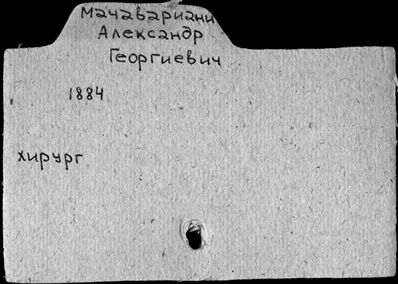 Мачавариани
Александр
Георгиевич
1884
хирург